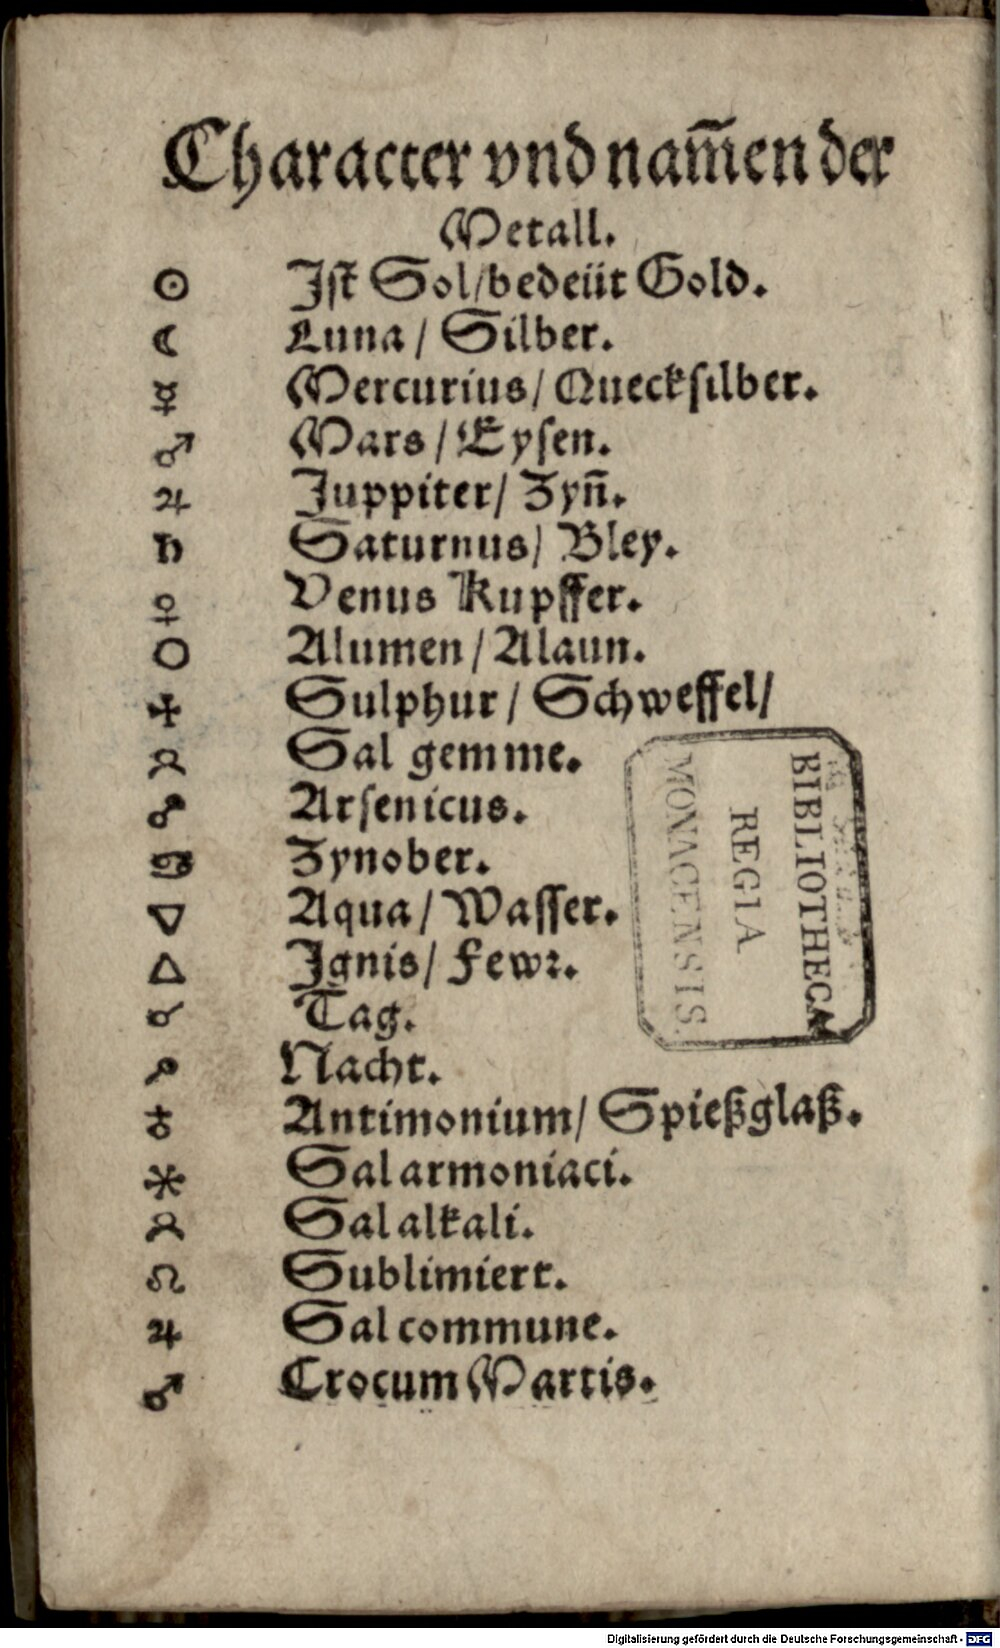 Character vnd nam̄en der
Metall.
☉ Iſt Sol/bedeüt Gold.
☾ Luna/ Silber.
☿ Mercurius/ Queckſilber.
♂ Mars/ Eyſen.
♃ Iuppiter/ Zyn̄.
♄ Saturnus/ Bley.
♀ Venus Kupffer.
○ Alumen/ Alaun.
Sulphur/ Schweffel/
Sal gemme.
Arſenicus.
♋ Zynober.
▽ Aqua/ Waſſer.
△ Ignis/ Fewꝛ.
Tag.
Nacht.
♁ Antimonium/ Spießglaß.
Sal armoniaci.
Sal alkali.
♌ Sublimiert.
♃ Sal commune.
♂ Crocum Martis.
BIBLIOTHECA
REGIA
MONACENSIS.
Digitalisierung gefördert durch die Deutsche Forschungsgemeinschaft - DFG